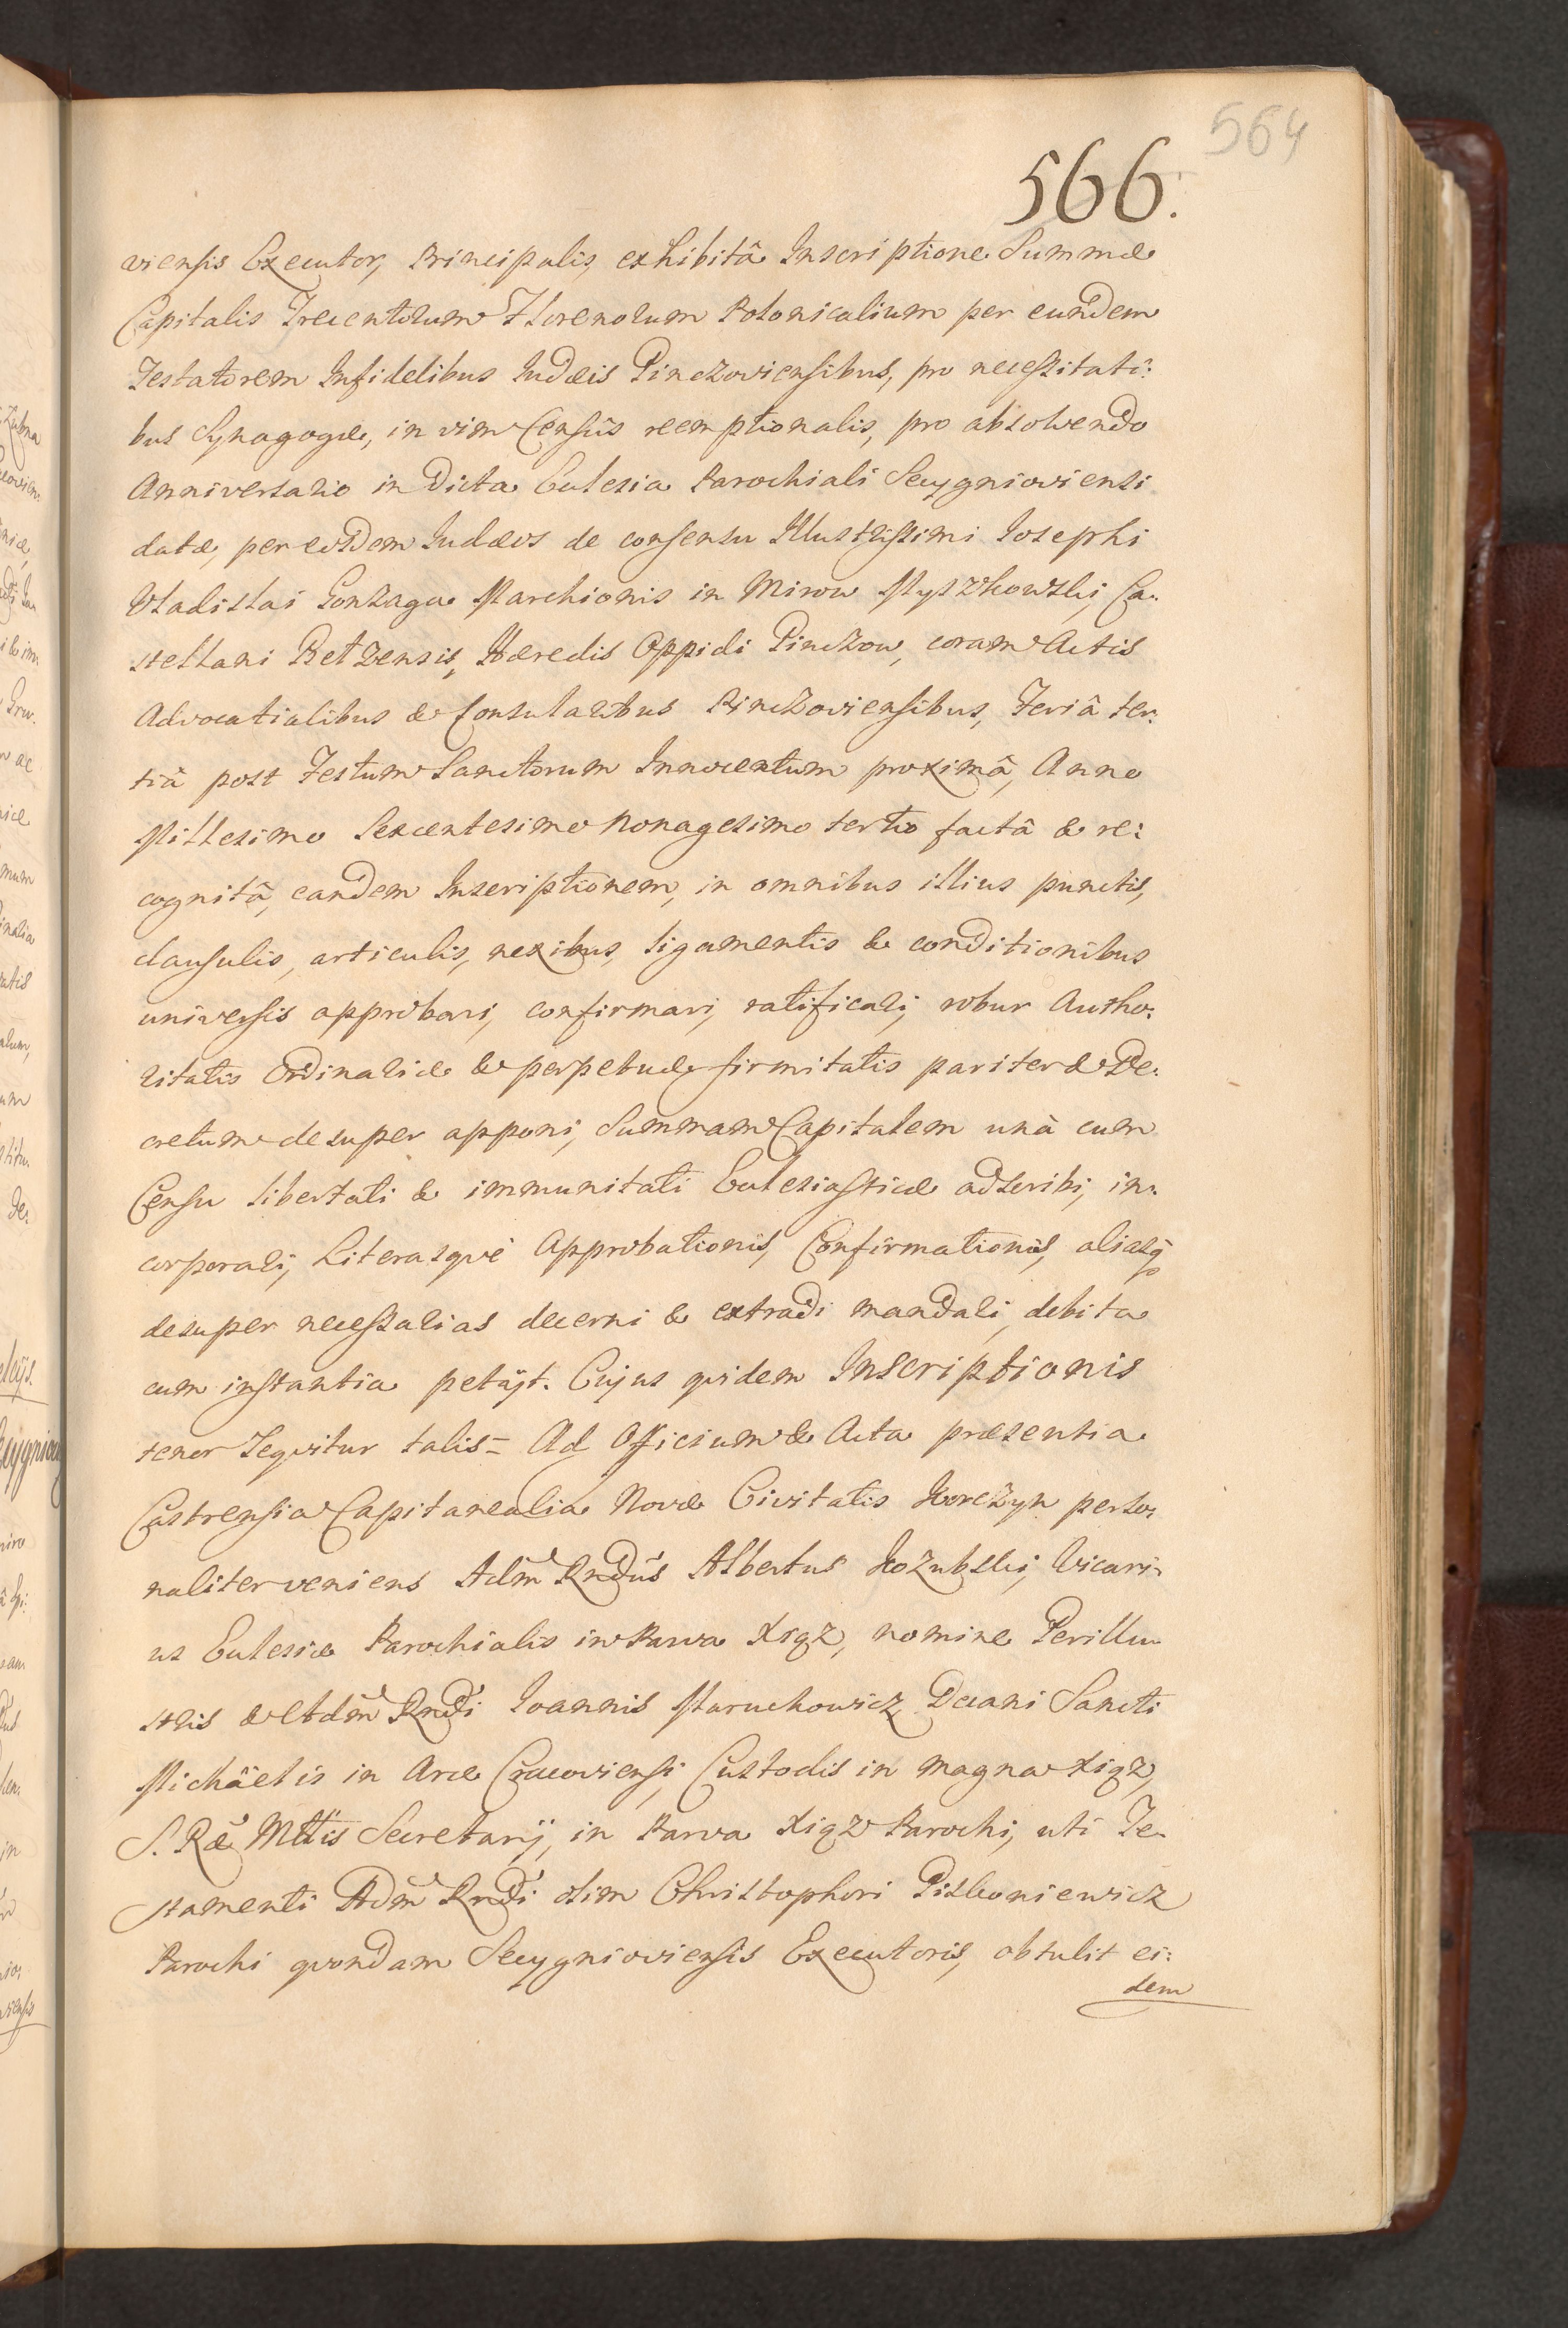 564
566.
viensis Executor, Principalis, exhibitâ Inscriptione Summæ
Capitalis Trecentorum Florenorum Polonicalium per eundem
Testatorem Infidelibus Iudæis Pinczoviensibus, pro necessitati:
bus Synagogæ, in vim Censûs reemptionalis, pro absolvendo
Anniversario in dicta Ecclesia Parochiali Secygnioviensi
datæ, per eosdem Iudæos de consensu Illustrissimi Iosephi
Vladislai Gonzaga Marchionis in Mirow Myszkowski, Ca:
stellani Bełzensis, Hæredis Oppidi Pinczow, coram Actis
Advocatialibus & Consularibus Pinczoviensibus, Feriâ ter:
tiâ post Festum Sanctorum Innocentum proximâ, Anno
Millesimo Sexcentesimo Nonagesimo tertio factâ & re:
cognitâ, eandem Inscriptionem, in omnibus illius punctis,
clausulis, articulis, nexibus, ligamentis & conditionibus
universis approbari, confirmari, ratificari, robur Autho:
ritatis Ordinariæ & perpetuæ firmitatis pariter & De:
cretum desuper apponi, Summam Capitalem unà cum
Censu libertati & immunitati Ecclesiasticæ adscribi, in:
corporari, Literasque Approbationis, Confirmationis, aliasq
desuper necessarias decerni & extradi mandari, debita
cum instantia petijt. Cujus quidem Inscriptionis
tenor Sequitur talis = Ad Officium & Acta præsentia
Castrensia Capitanealia Novæ Civitatis Korczyn perso:
naliter veniens Adm̃ Rndũs Albertus Kozubski, Vicari:
us Ecclesiæ Parochialis in Parva Xiąz, nomine Perillu:
stris & Adm̃ Rndi Ioannis Maruchowicz Decani Sancti
Michäelis in Arce Cracoviensi, Custodis in Magna Xiąz,
S. Ræ Mttis Secretarij, in Parva Xiąz Parochi, uti Te:
stamenti Adm̃ Rndi olim Christophori Piskoniewicz
Parochi quondam Secygnioviensis Executoris, obtulit ei:
dem